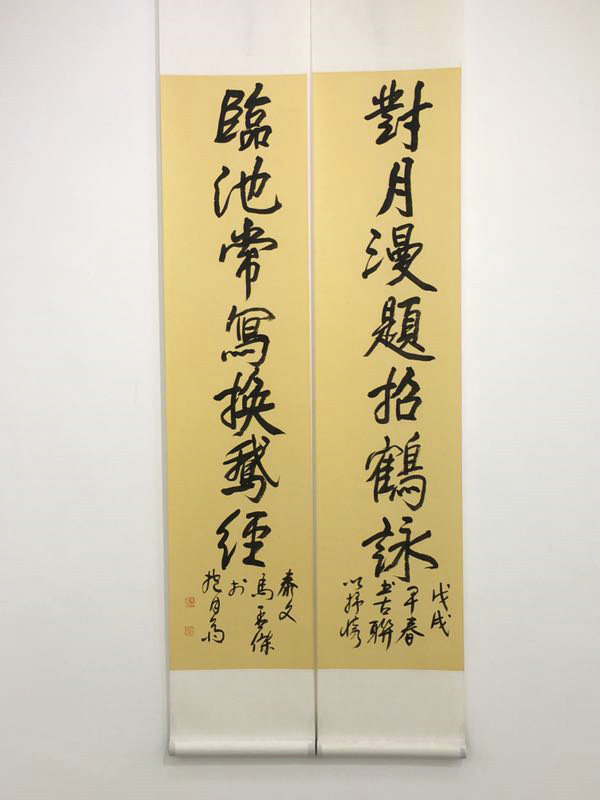 對月漫題招鶴詠
戊戌
早春
書古聯
以抒情
臨池常寫換鵝經
泰文
馬
於
抱月